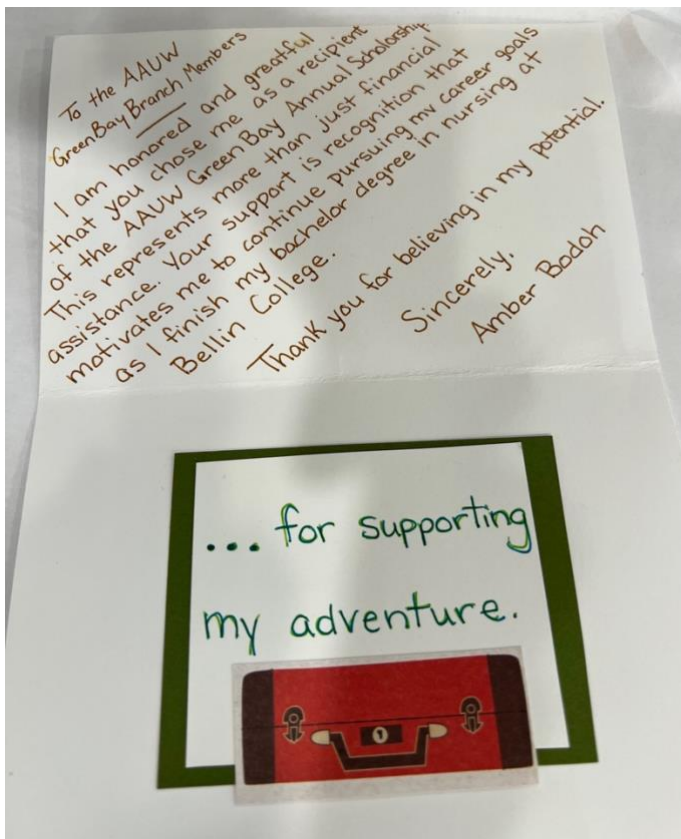 To the AAUW
Green Bay Branch Members
I am honored and greatful
that you chose me as a recipient
of the AAUW Green Bay Annual Scholarship
This represents more than just financial
assistance. Your support is recognition that
motivates me to continue pursuing my career goals
as I finish my bachelor degree in nursing at
Bellin College.
Thank you for believing in my potential.
Sincerely,
Amber Bodoh
... for supporting
my adventure.